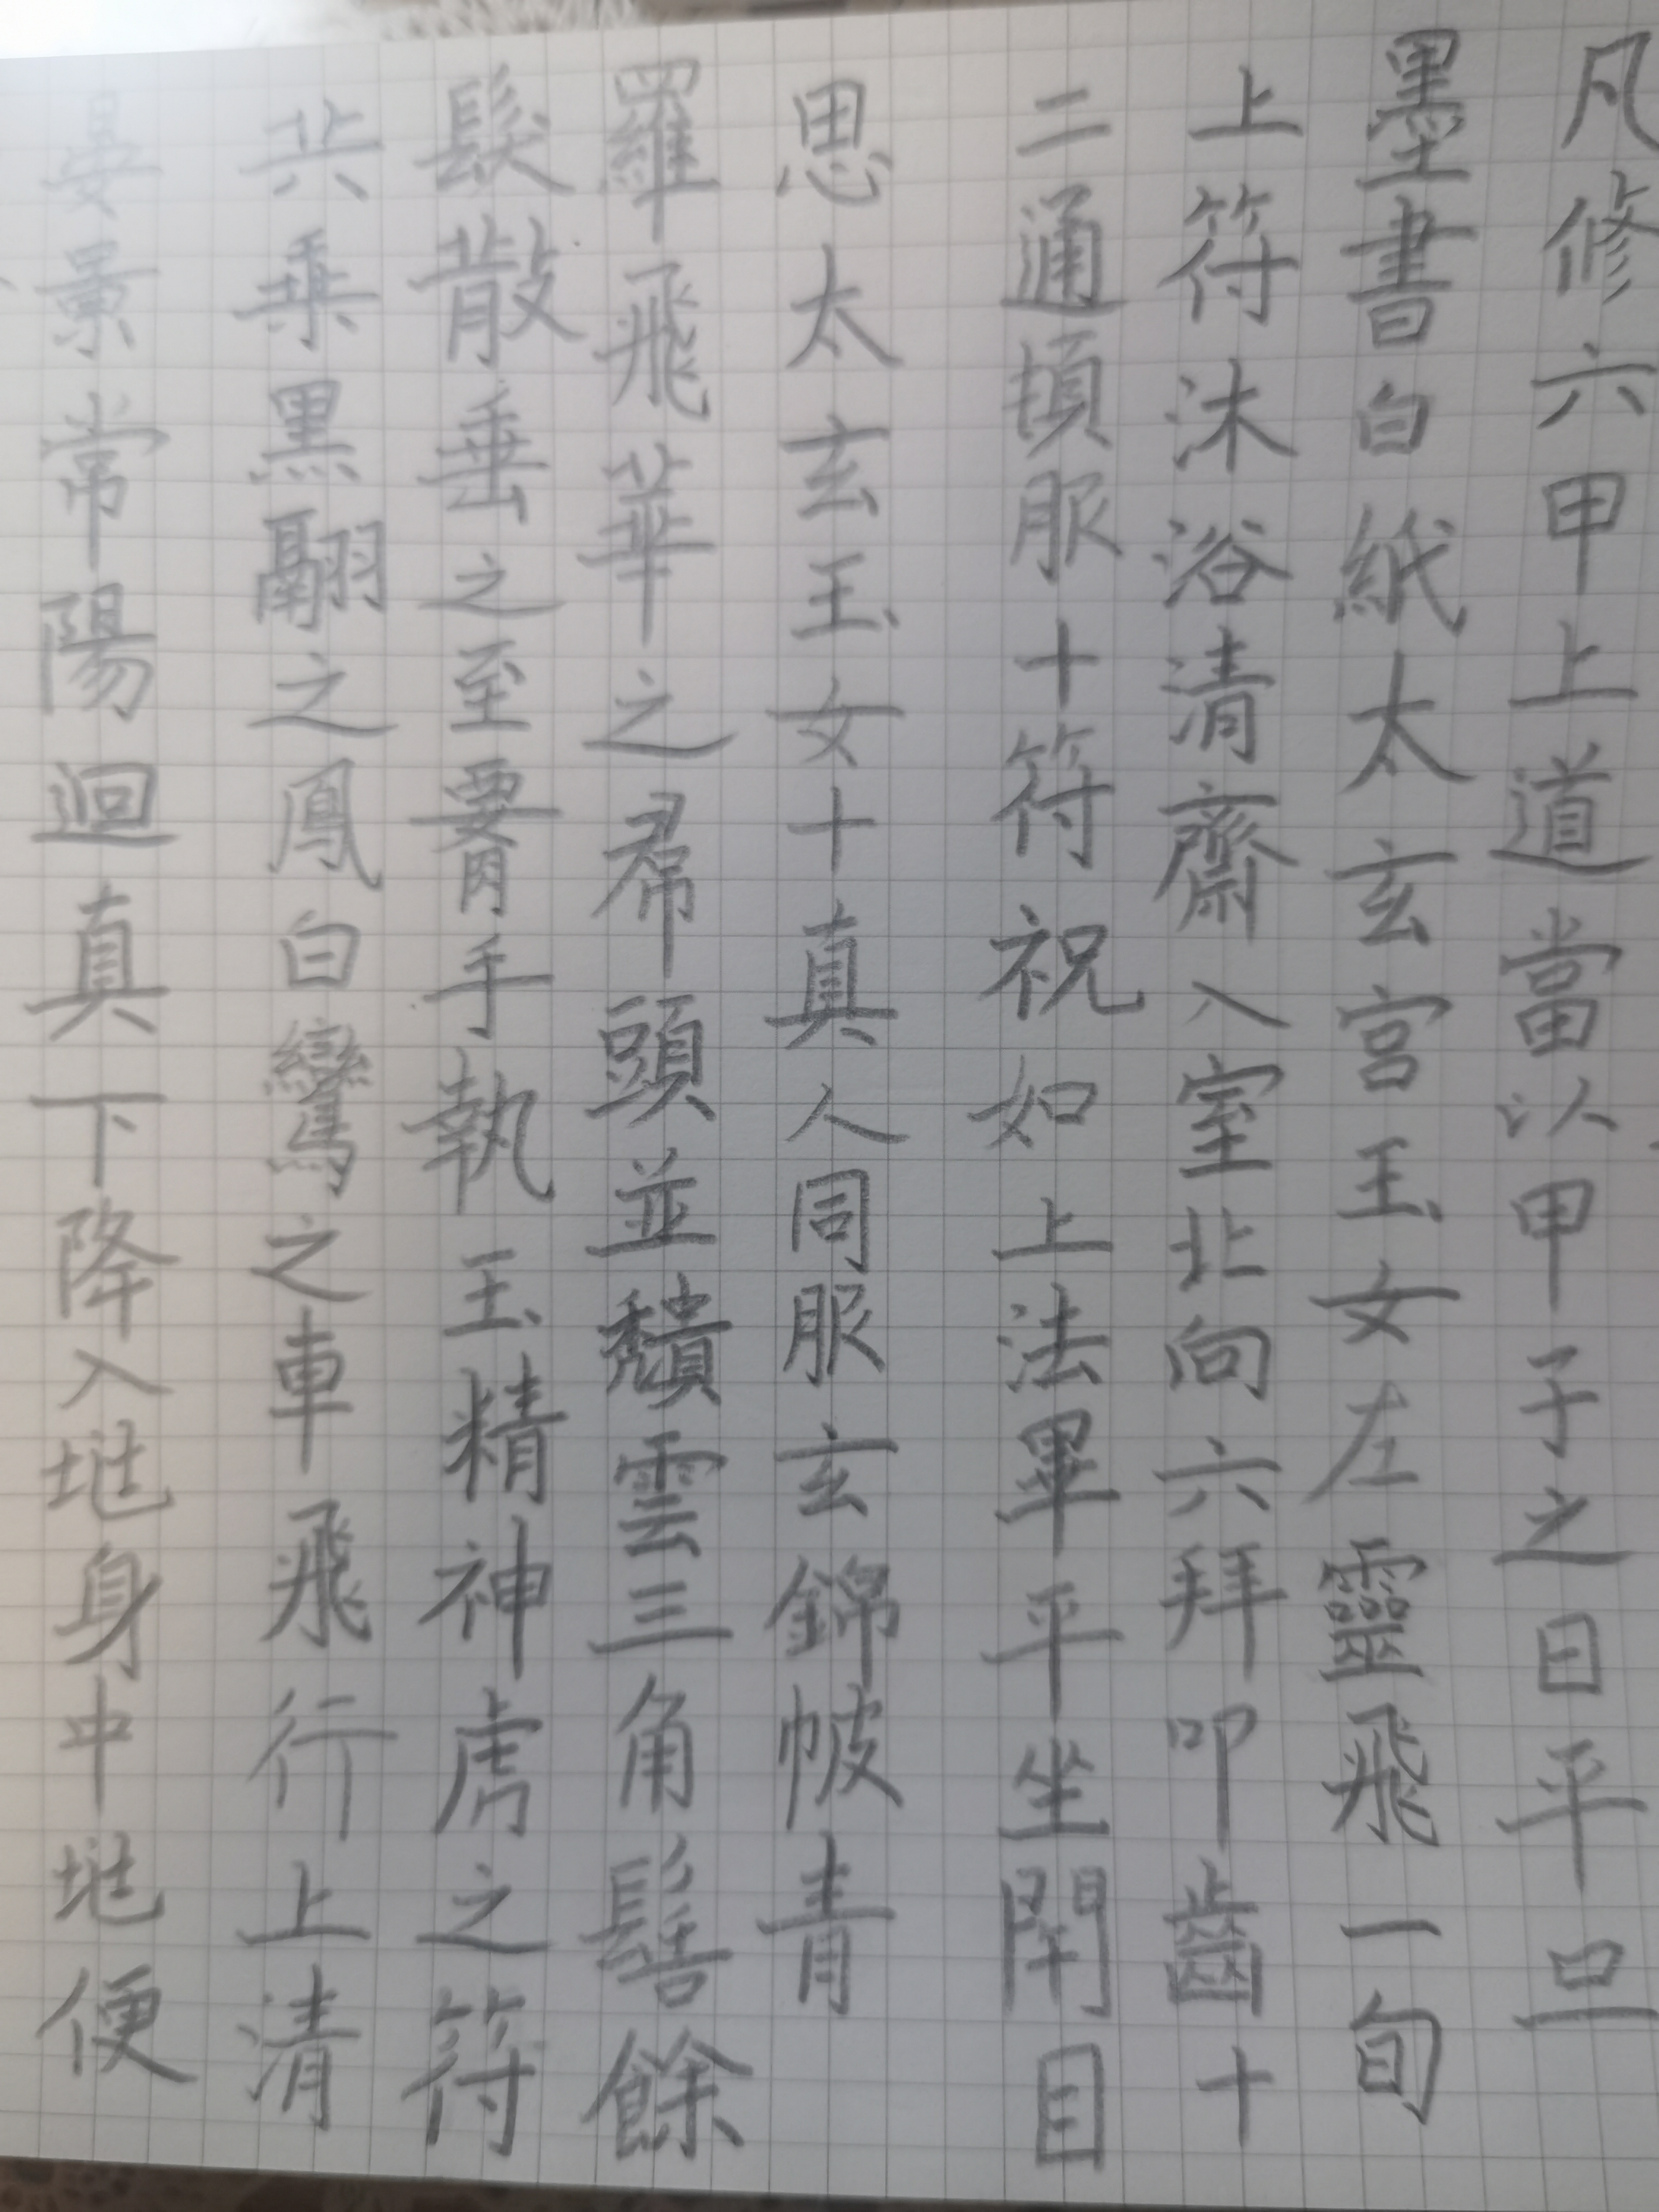 凡修六甲上道當以甲子之日平旦
墨書白紙太玄宫玉女左靈飛一旬
上符沐浴清齋入室北向六拜叩齒十
二通頓服十符祝如上法畢平坐閉目
思太玄玉女十真人同服玄錦帔青
羅飛華之帬頭並頹雲三角髻餘
髮散垂之至𦝫手執玉精神虎之符
共乘黑翮之鳳白鸞之車飛行上清
晏景常陽迴真下降入𡊄身中𡊄便